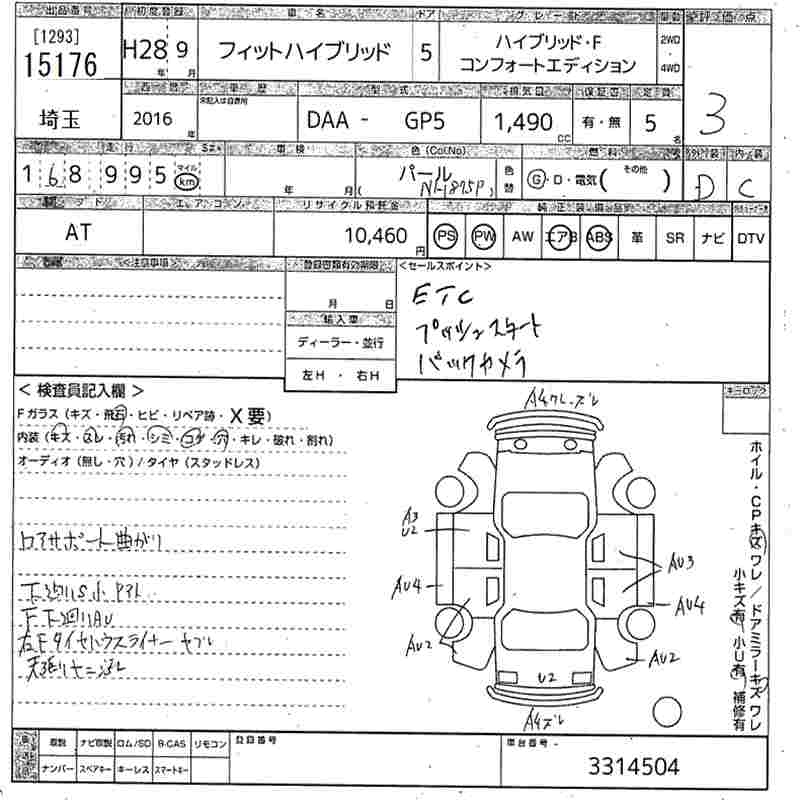 出品番号 初度登録 車名 ドア グレード 駆動 評価点
[1293]
15176 H28年 9月 フィットハイブリッド 5 ハイブリッド・F コンフォートエディション 2WD・4WD 3
埼玉
西暦 車歴 型式 排気量 保証書 定員
2016年 未記入は自家用 DAA - GP5 1,490CC 有・無 5名
走行 車検 色(Co(No) 燃料 外装 内装
168995 マイル km 年 月 パール( NH-875P ) 色替 G・D・電気( その他 ) D C
エアコン リサイクル預託金 純正装備品
AT 10,460円 PS PW AW エアB ABS 革 SR ナビ DTV
<注意事項> 登録書類有効期限 <セールスポイント>
月 日 ETC
輸入車 プッシュスタート
ディーラー・並行 バックカメラ
左H ・ 右H
<検査員記入欄> キーロック
Fガラス(キズ・飛石・ヒビ・リペア跡・X要)
内装(キズ・スレ・汚れ・シミ・コゲ・穴・キレ・破れ・割れ)
オーディオ(無し・穴)/タイヤ(スタッドレス)
ロアサポート曲がり
下廻りS小
F下廻りAU
右Fタイヤハウスライナー ヤブレ
A4ワレ、ズレ
A3
U2
AU4
AU2
AU3
AU4
AU2
U2
A4ズレ
ホイル・CPキズワレ/ドアミラーキズワレ
小キズ有 小U有 補修有
取説 ナビ取説 ロム/SD B-CAS リモコン 登録番号 車台番号
ナンバー スペアキー キーレス スマートキー 3314504